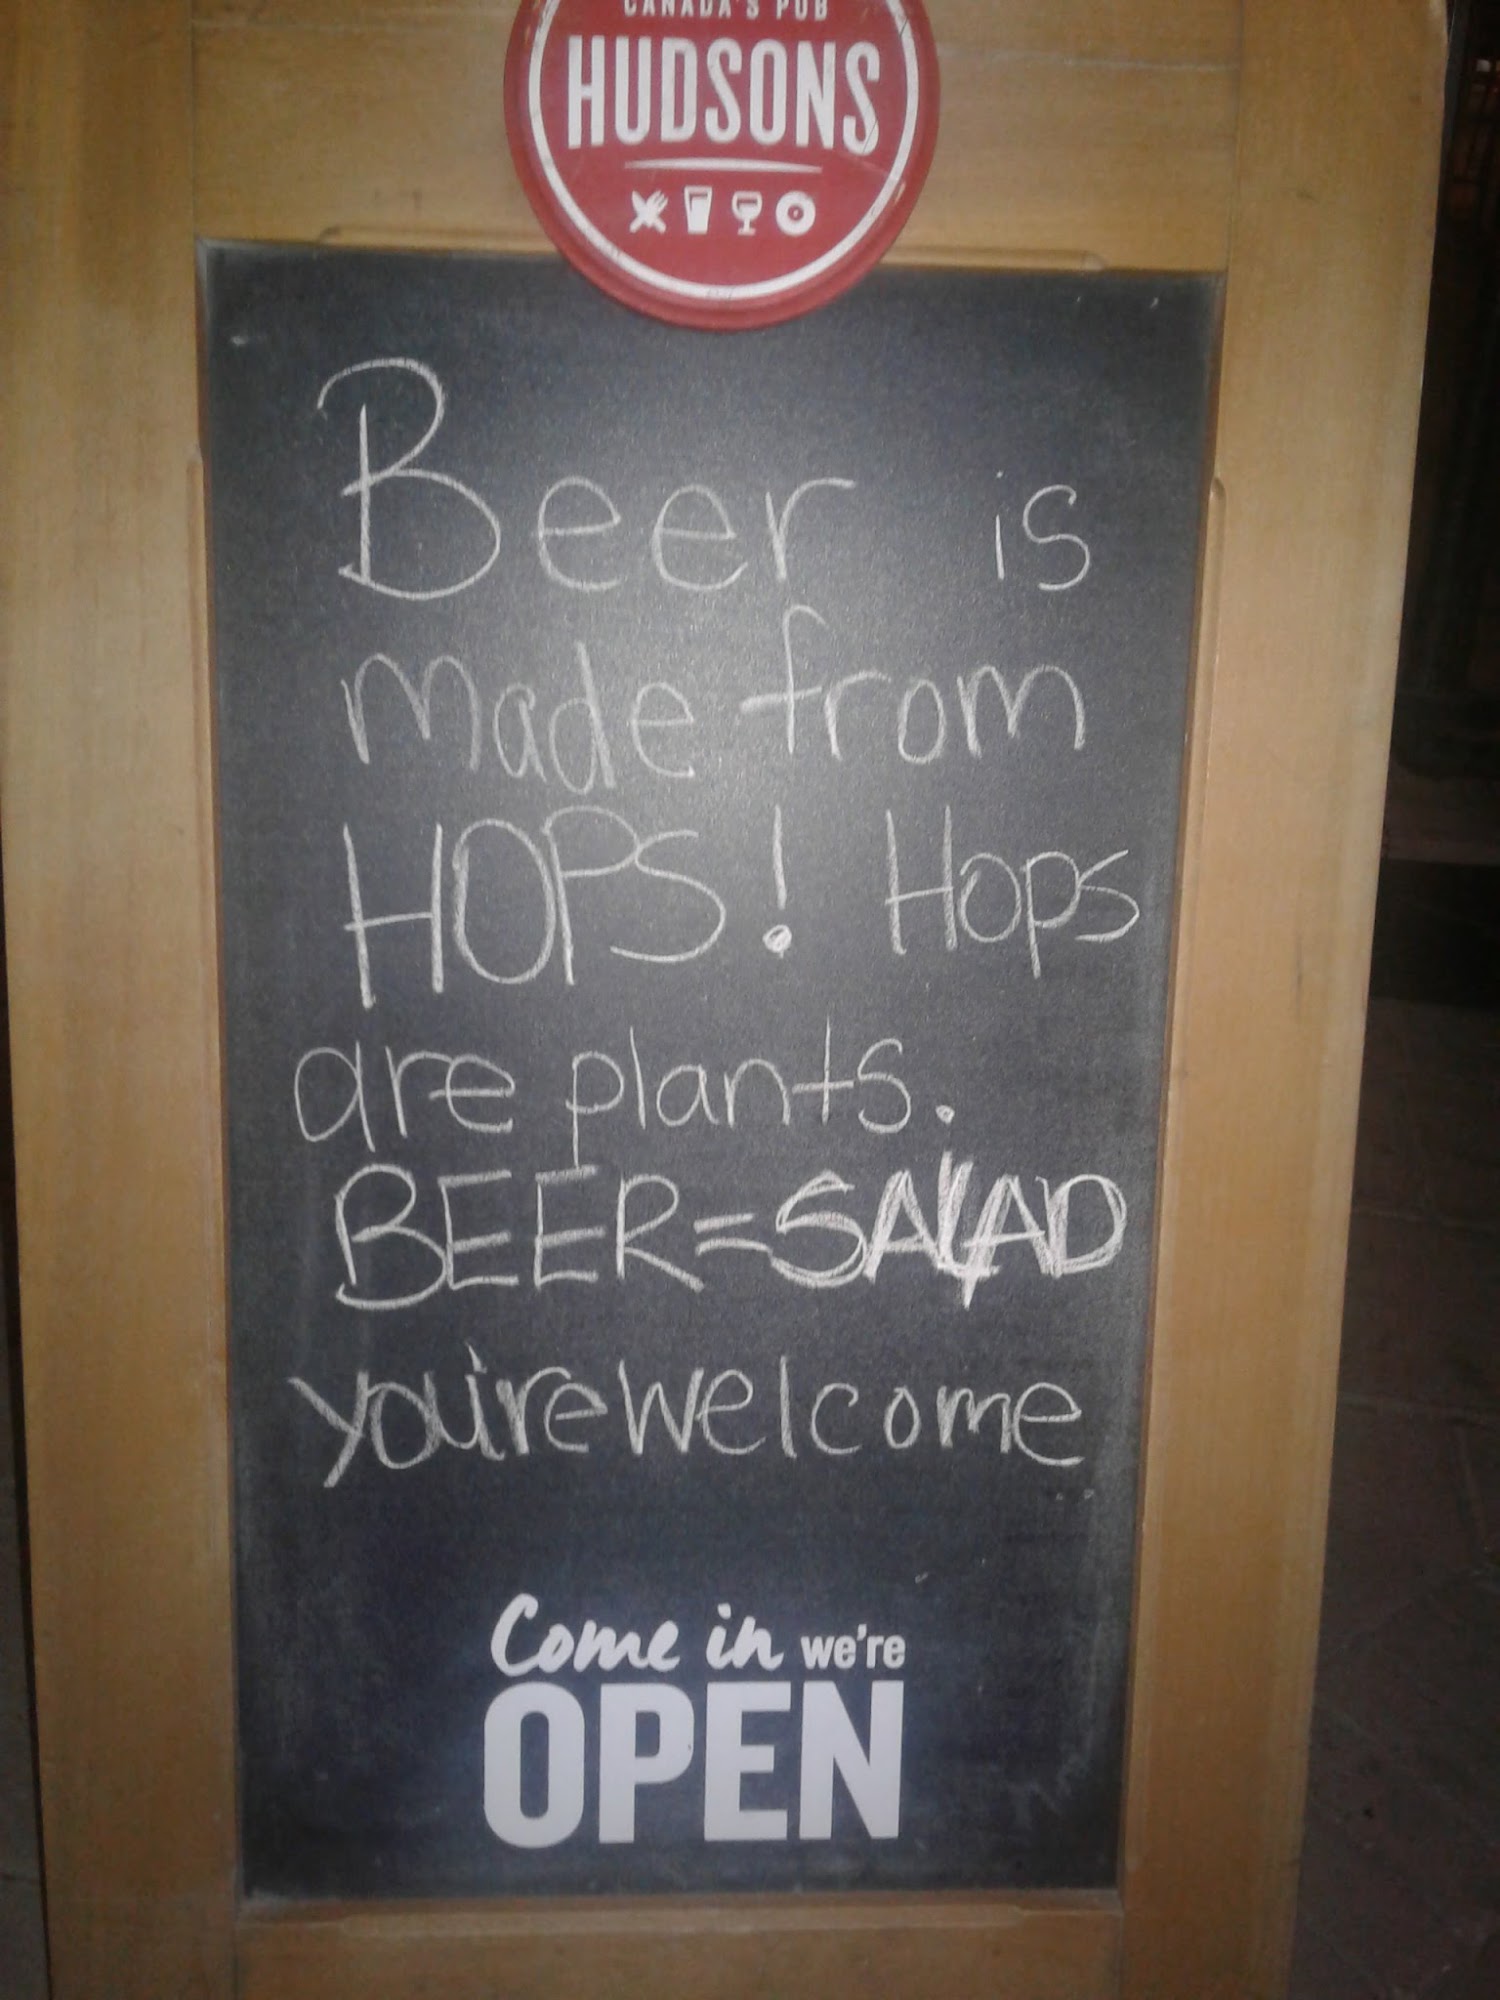 CANADA'S PUB
HUDSONS
Beer is
made from
HOPS! Hops
are plants.
BEER=SALAD
you're welcome
Come in we're
OPEN